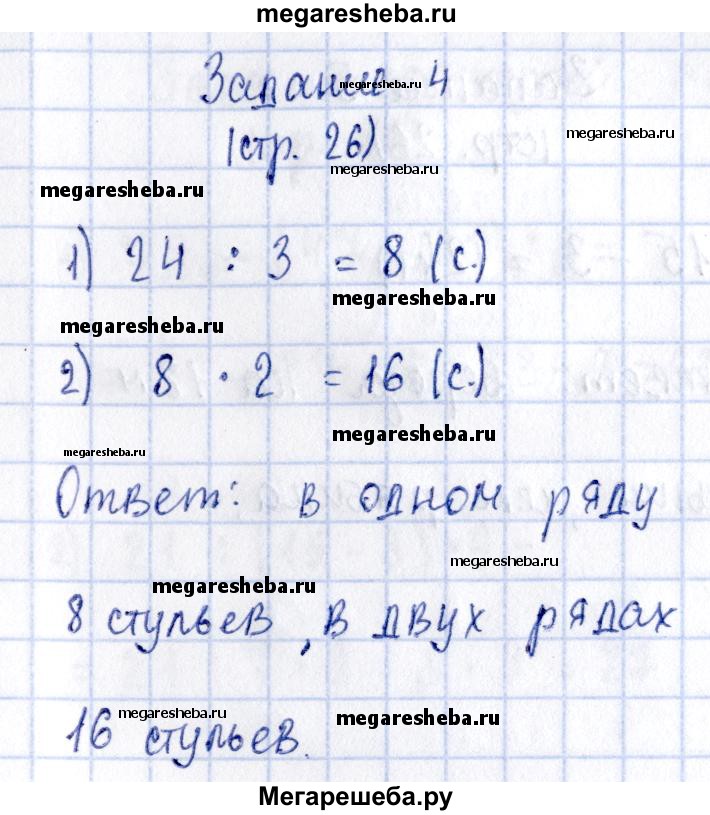 megaresheba.ru
Задание 4
megaresheba.ru
(стр. 26)
megaresheba.ru
megaresheba.ru
megaresheba.ru
1) 24 : 3 = 8 (с.)
megaresheba.ru
megaresheba.ru
2) 8 · 2 = 16 (с.)
megaresheba.ru
megaresheba.ru
Ответ: в одном ряду
megaresheba.ru
megaresheba.ru
8 стульев, в двух рядах
megaresheba.ru
megaresheba.ru
16 стульев.
Мегарешеба.ру